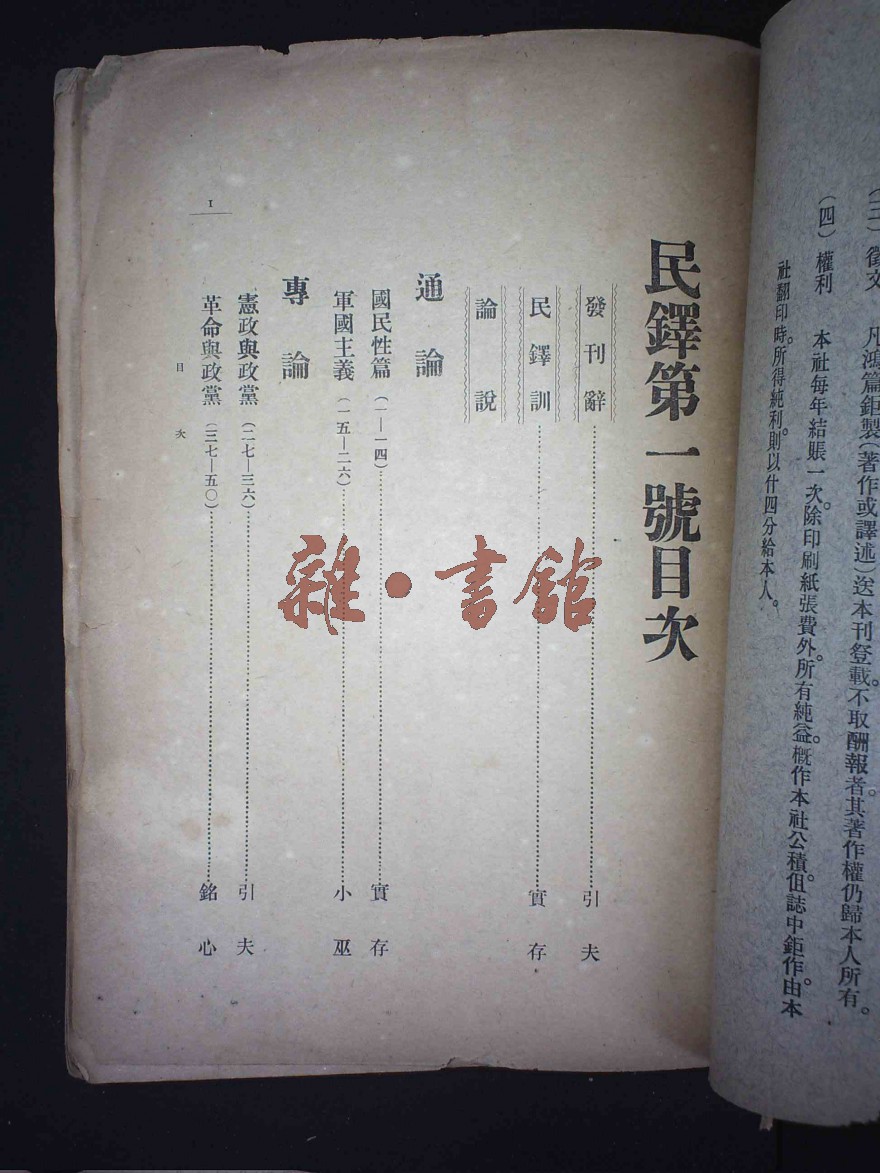 徵文 凡鴻篇鉅製(著作或譯述)送本刊登載。不取酬報者。其著作權仍歸本人所有。
(四) 權利 本社每年結賬一次。除印刷紙張費外。所有純益。概作本社公積。但誌中鉅作。由本
社翻印時。所得純利。則以什四分給本人。
民鐸第一號目次
發刊辭 引夫
民鐸訓 實存
論說
通論
國民性篇(一—一四) 實存
軍國主義(一五—二六) 小巫
專論
憲政與政黨(二七—三六) 引夫
革命與政黨(三七—五〇) 銘心
目次
1
雜·書館